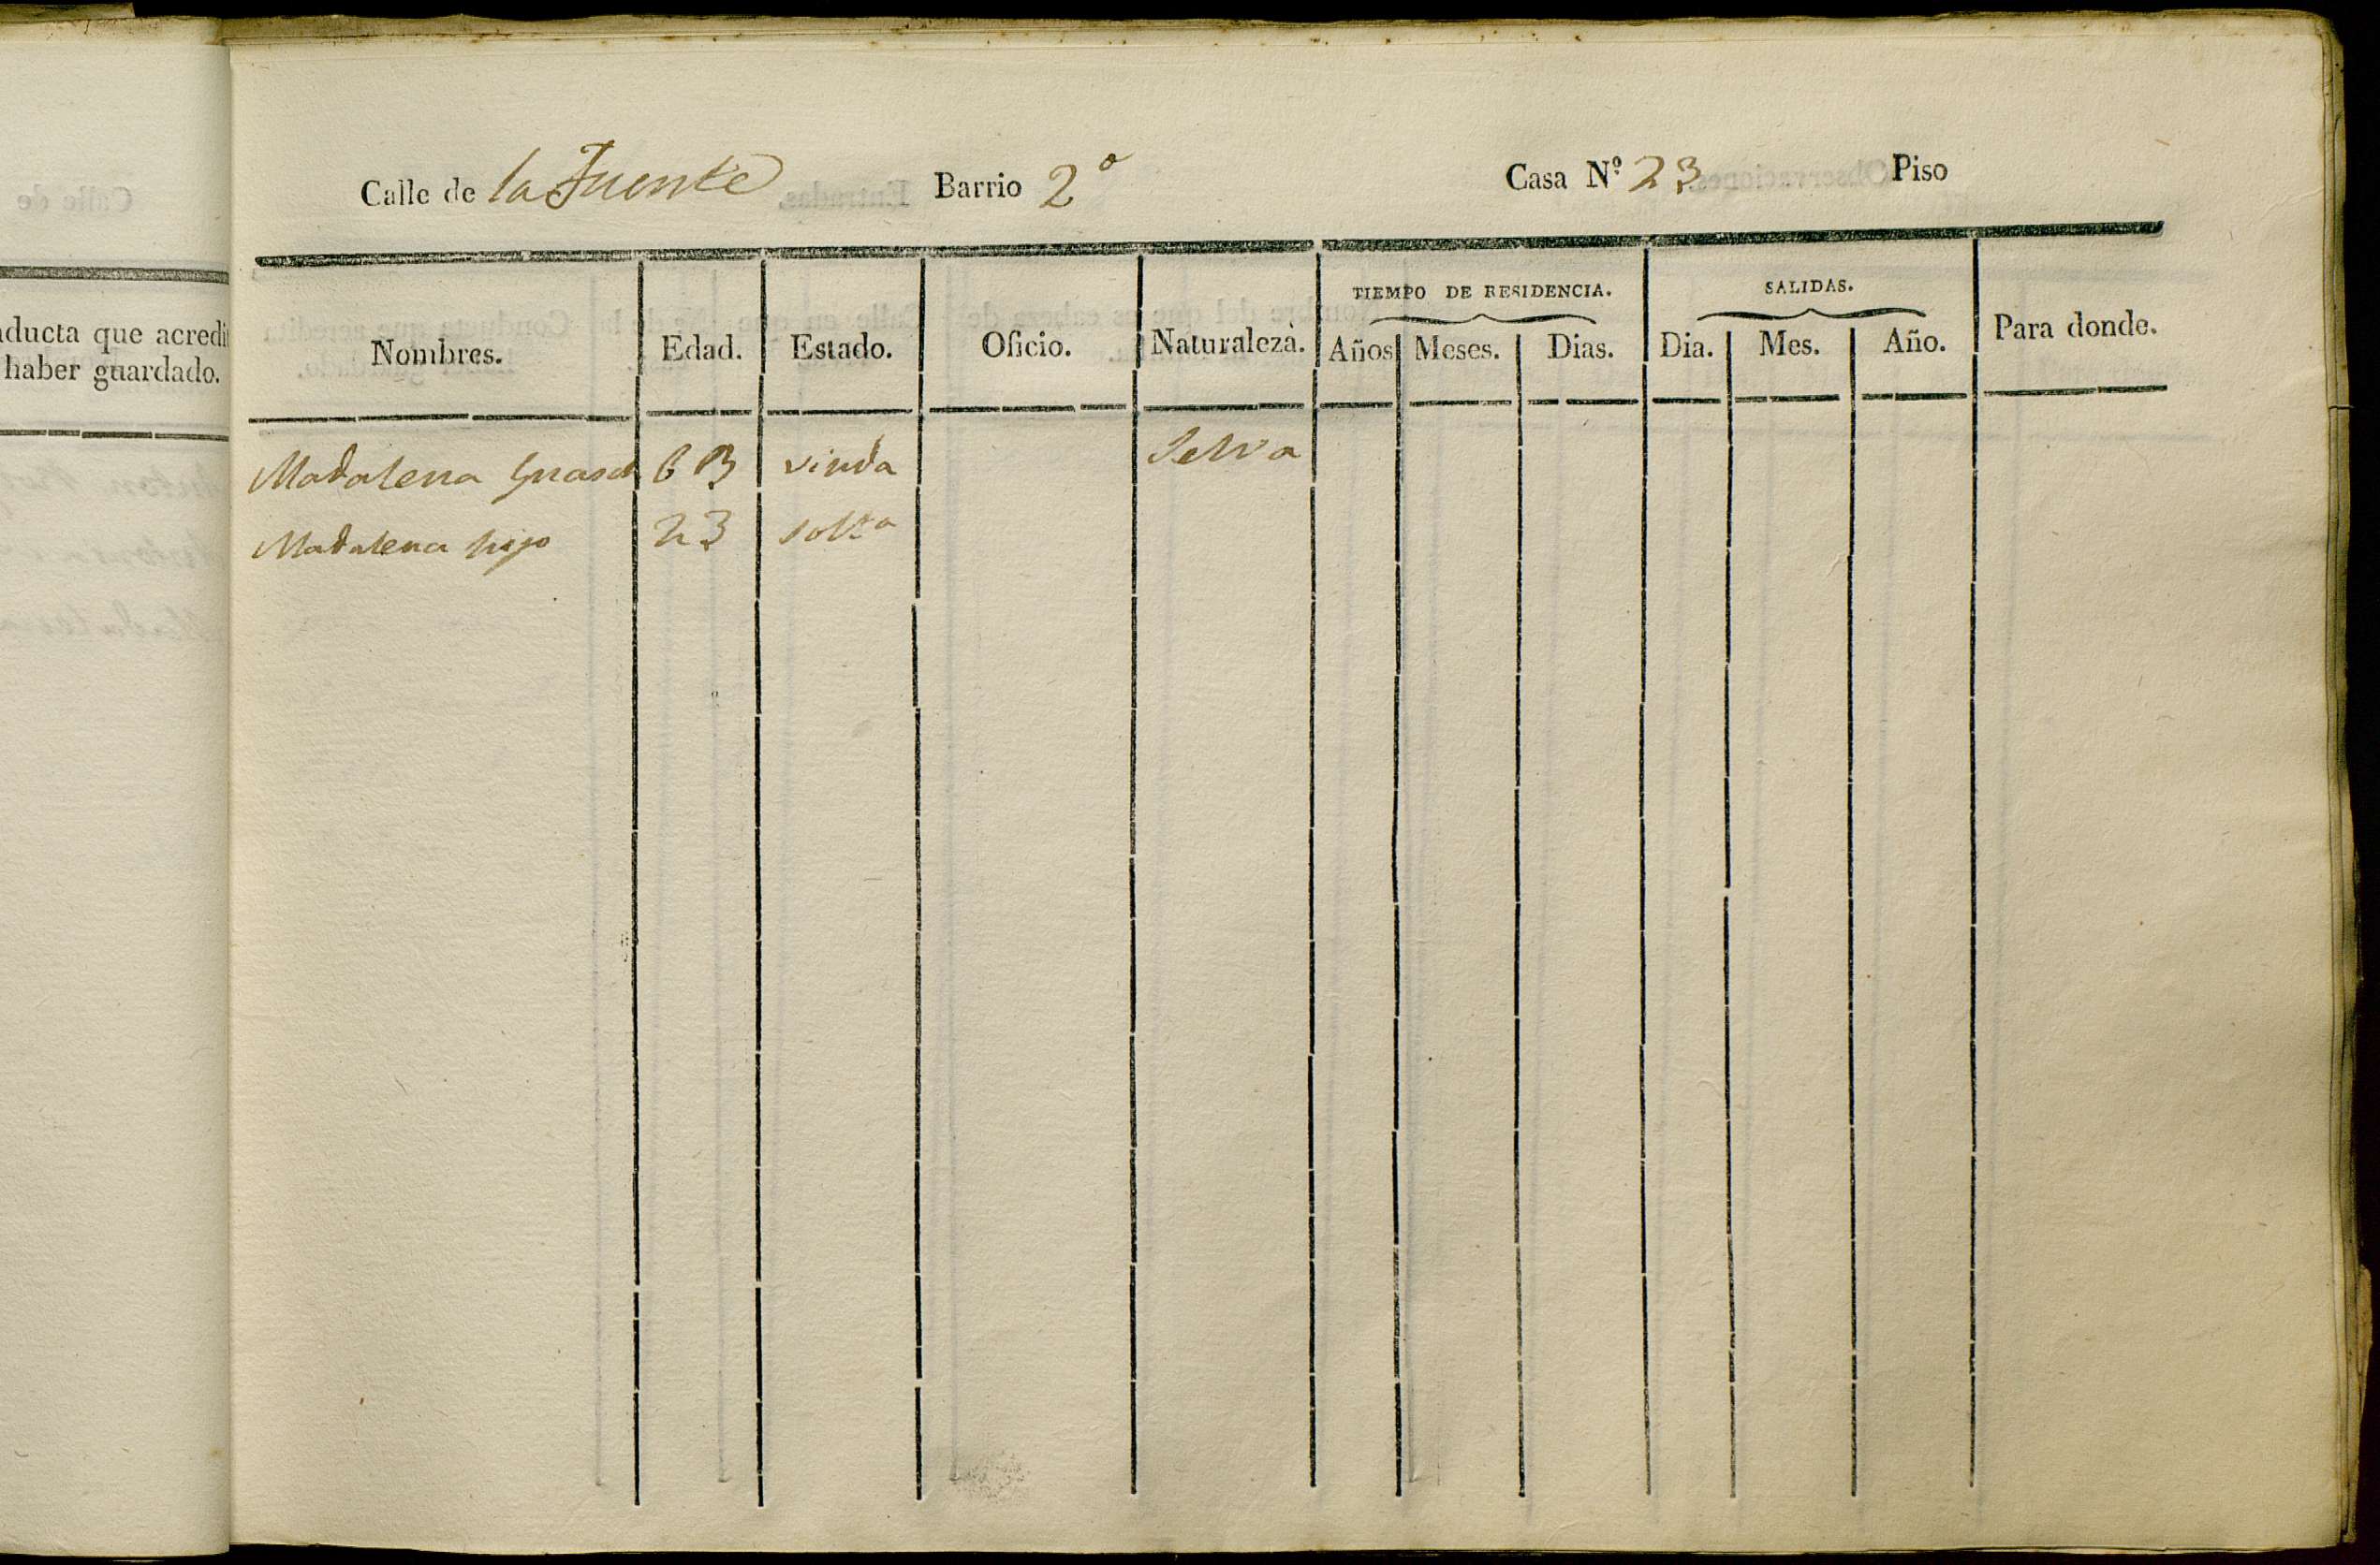 Calle de la Fuente Barrio 2º Casa Nº 23 Piso
TIEMPO DE RESIDENCIA. SALIDAS.
Nombres. Edad. Estado. Oficio. Naturaleza. Años Meses. Dias. Dia. Mes. Año. Para donde.
Madalena Guasch 63 viuda Selva
Madalena hija 23 soltª
ducta que acredi
haber guardado.